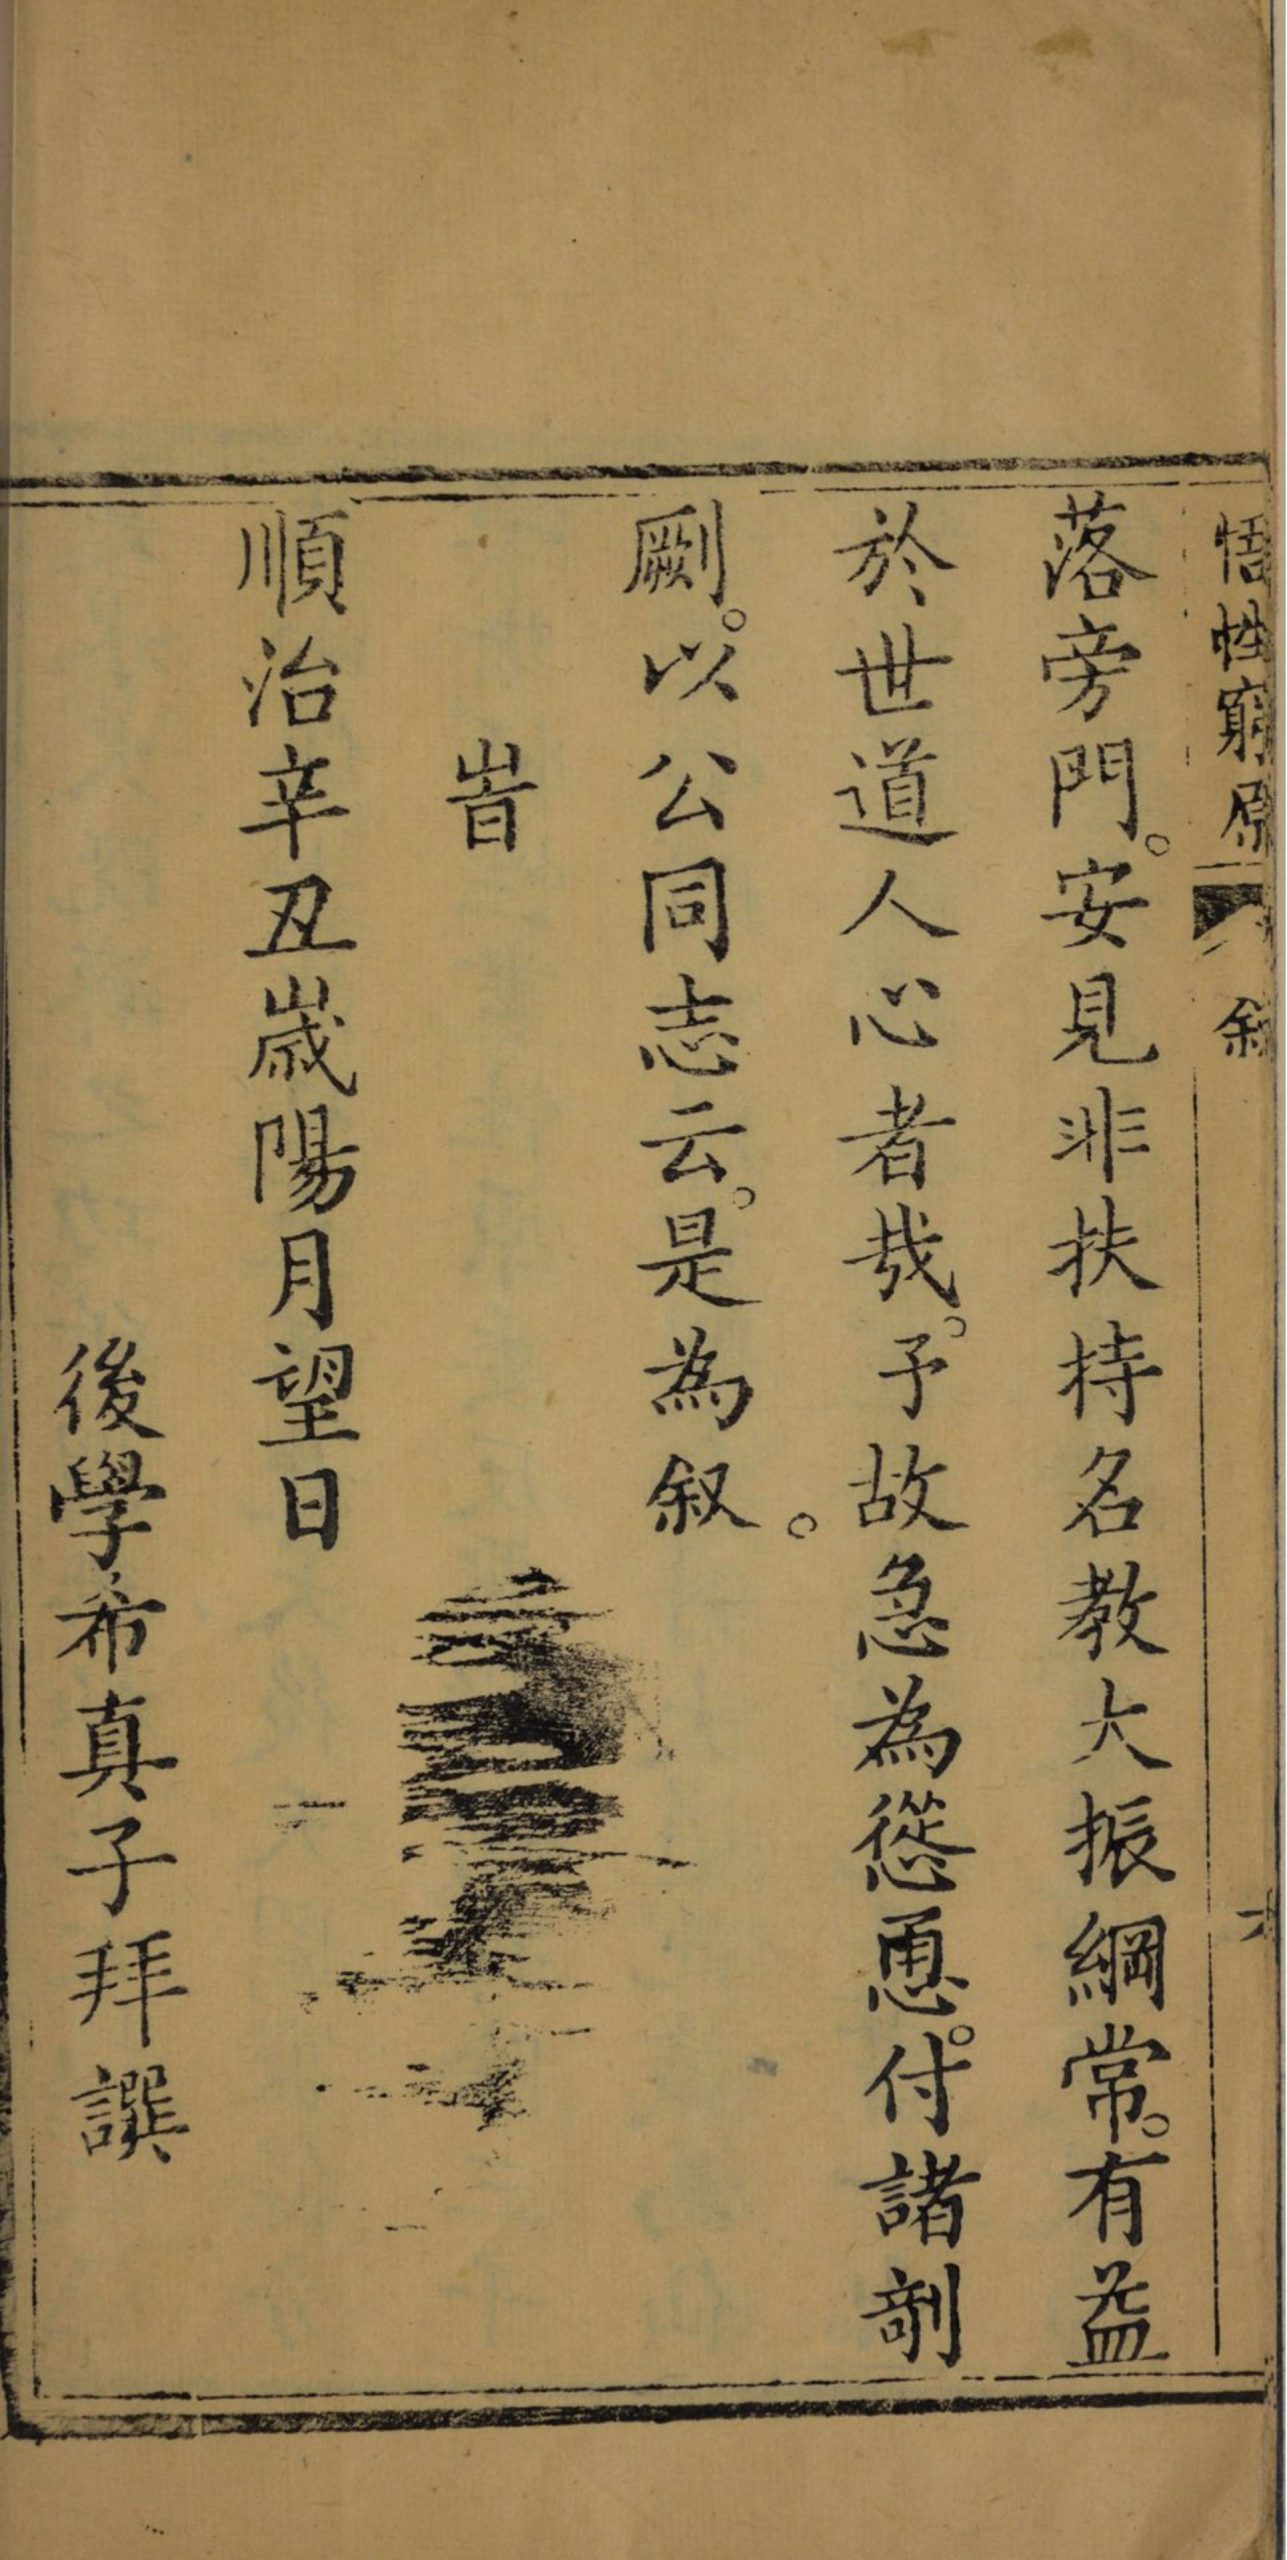 悟性窮原
叙
落旁門。安見非扶持名教大振綱常。有益
於世道人心者哉。予故急為慫恿。付諸剞
劂。以公同志云。是為叙。
旹
順治辛丑歲陽月望日
後學希真子拜譔